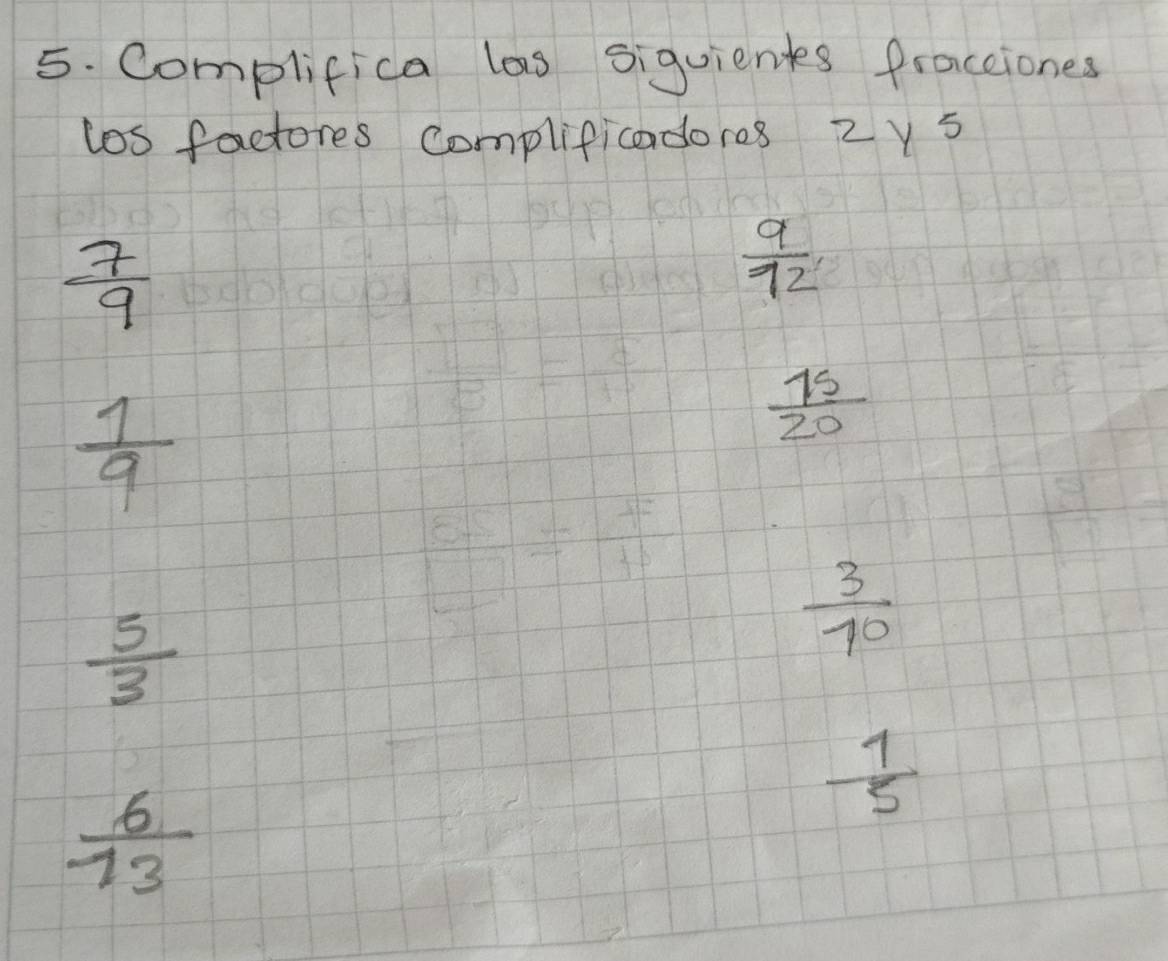 5. Complifica las siguientes fracciones
los factores complificadores 2 y 5
7/9 9/12
1/9 15/20
5/3 3/10
6/13 1/5